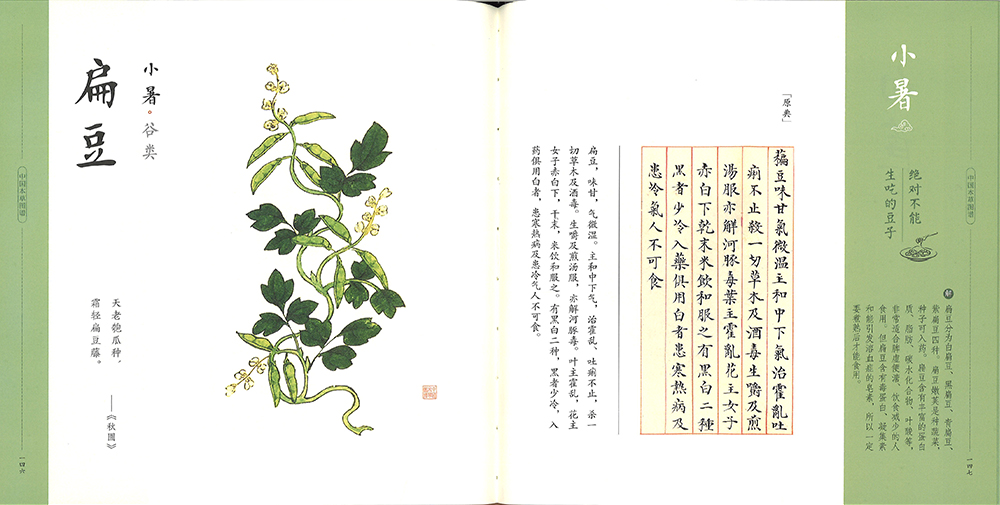 扁豆
小暑·谷类
天老匏瓜种，
霜轻扁豆藤。
中国本草图谱
一四六
「原典」
藊豆味甘氣微温主和中下氣治霍亂吐
痢不止殺一切草木及酒毒生嚼及煎
湯服亦解河豚毒葉主霍亂花主女子
赤白下乾末米飲和服之有黑白二種
黑者少冷入藥俱用白者患寒熱病及
患冷氣人不可食
扁豆，味甘，气微温。主和中下气，治霍乱、吐痢不止，杀一
切草木及酒毒。生嚼及煎汤服，亦解河豚毒。叶主霍乱，花主
女子赤白下，干末，米饮和服之。有黑白二种，黑者少冷，入
药俱用白者，患寒热病及患冷气人不可食。
小暑
绝对不能
生吃的豆子
解
扁豆分为白扁豆、黑扁豆、青扁豆、
紫扁豆四种，扁豆嫩荚是种蔬菜，
种子可入药。扁豆含有丰富的蛋白
质、脂肪、碳水化合物、叶酸等，
非常适合脾虚便溏、饮食减少的人
食用。但扁豆含有毒蛋白、凝集素
和能引发溶血症的皂素，所以一定
要煮熟后才能食用。
中国本草图谱
一四七